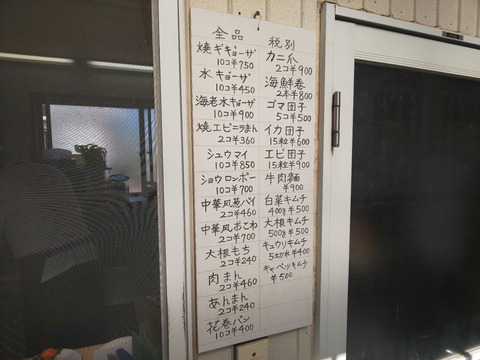 全品
焼ギョーザ
10コ¥750
水ギョーザ
10コ¥450
海老水ギョーザ
10コ¥900
焼エビニラまん
2コ¥360
シュウマイ
10コ¥850
ショウロンポー
10コ¥700
中華風葱パイ
2コ¥460
中華風おこわ
2コ¥700
大根もち
2コ¥240
肉まん
2コ¥460
あんまん
2コ¥240
花巻パン
10コ¥400
税別
カニ爪
2コ¥900
海鮮巻
2本¥800
ゴマ団子
5コ¥500
イカ団子
15粒¥600
エビ団子
15粒¥900
牛肉麺
¥900
白菜キムチ
400g¥500
大根キムチ
500g¥500
キュウリキムチ
¥400
キャベツキムチ
¥500